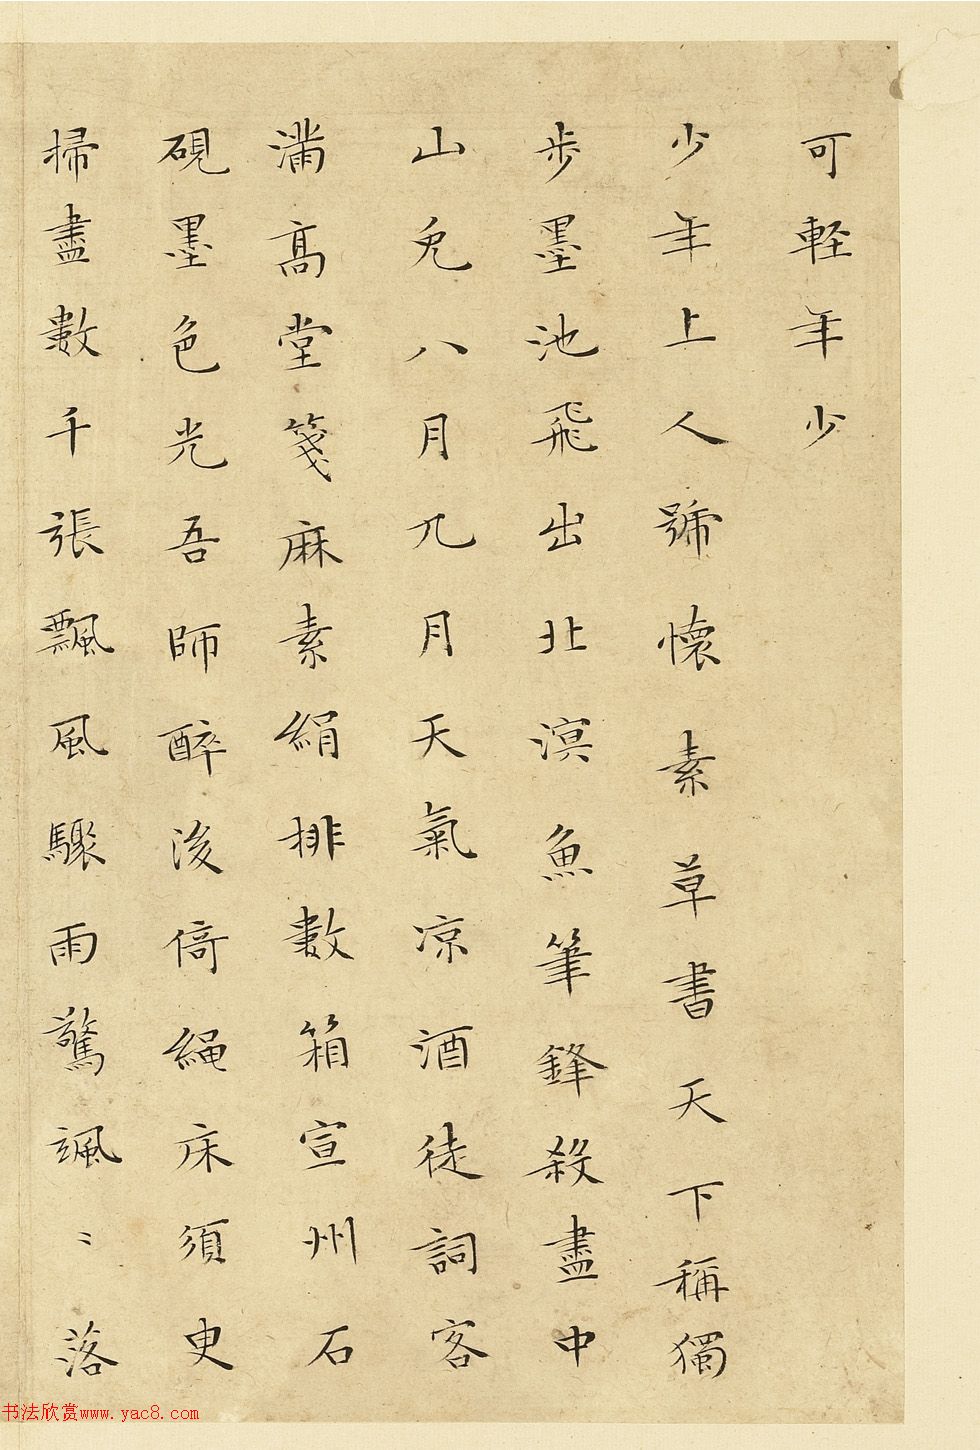 可輕年少
少年上人號懷素草書天下稱獨
步墨池飛出北溟魚筆鋒殺盡中
山兔八月九月天氣凉酒徒詞客
滿高堂箋麻素絹排數箱宣州石
硯墨色光吾師醉後倚繩床須臾
掃盡數千張飄風驟雨驚颯〻落
书法欣赏www.yac8.com